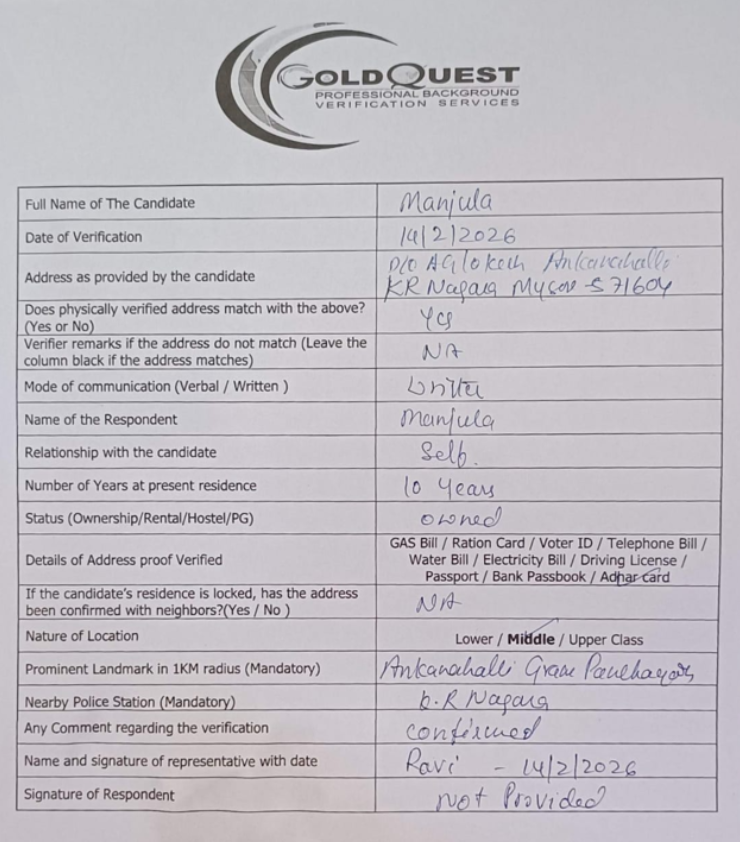 GOLDQUEST
PROFESSIONAL BACKGROUND
VERIFICATION SERVICES
Full Name of The Candidate Manjula
Date of Verification 14/2/2026
Address as provided by the candidate D/O Ankanahalli
KR Nagara 571604
Does physically verified address match with the above?
(Yes or No) Yes
Verifier remarks if the address do not match (Leave the
column black if the address matches) NA
Mode of communication (Verbal / Written )
Name of the Respondent Manjula
Relationship with the candidate Self.
Number of Years at present residence 10 Years
Status (Ownership/Rental/Hostel/PG) owned
Details of Address proof Verified GAS Bill / Ration Card / Voter ID / Telephone Bill /
Water Bill / Electricity Bill / Driving License /
Passport / Bank Passbook / Adhar card
If the candidate's residence is locked, has the address
been confirmed with neighbors?(Yes / No ) NA
Nature of Location Lower / Middle / Upper Class
Prominent Landmark in 1KM radius (Mandatory) Ankanahalli
Nearby Police Station (Mandatory) K.R Nagara
Any Comment regarding the verification confirmed
Name and signature of representative with date Ravi - 14/2/2026
Signature of Respondent Not Provided